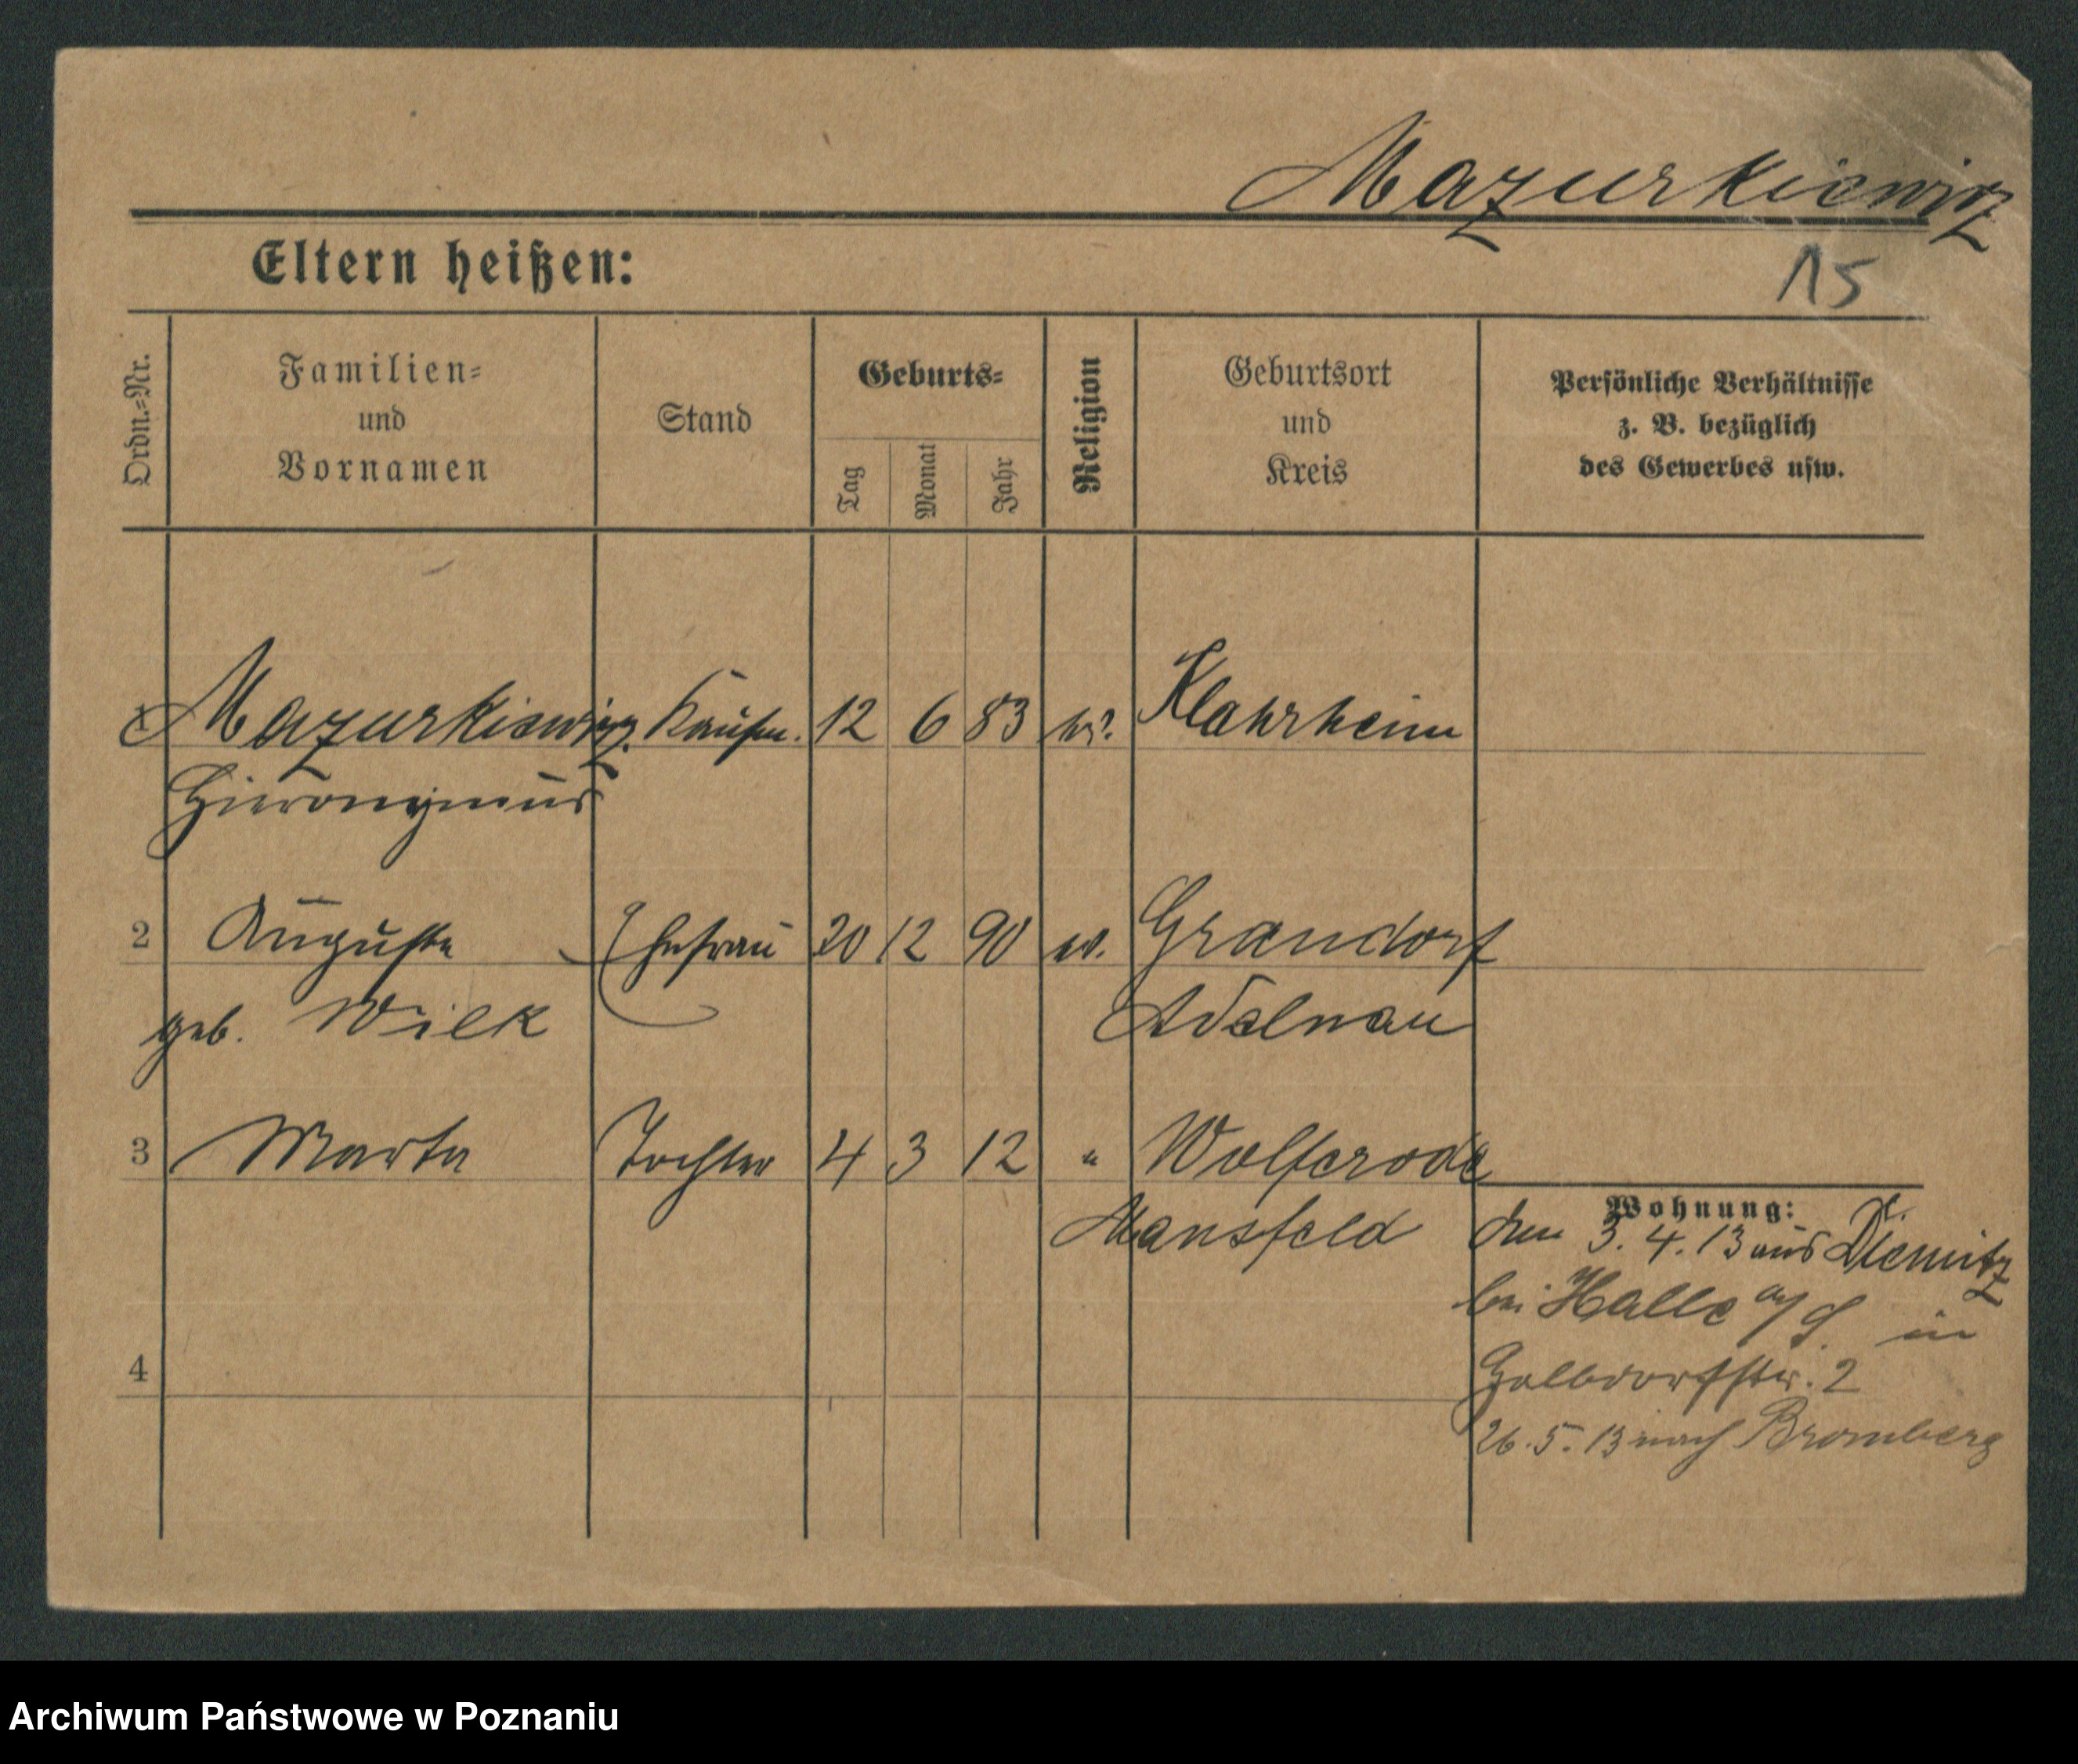 Mazurkiewicz
15
Eltern heißen:
Ordn.-Nr.
Familien-
und
Vornamen
Stand
Geburts-
Tag
Monat
Jahr
Religion
Geburtsort
und
Kreis
Persönliche Verhältnisse
z. B. bezüglich
des Gewerbes usw.
1 Mazurkiewicz Kaufm. 12 6 83 Klahrheim
Hieronymus
2 Auguste Ehefrau 20 12 90 ev. Grandorf
geb. Wilk Adelnau
3 Marta Tochter 4 3 12 " Wolferode
Mansfeld
Wohnung:
den 3. 4. 13 aus Diemitz
bei Halle a/S. in
2
26. 5. 13 nach Bromberg
4
Archiwum Państwowe w Poznaniu